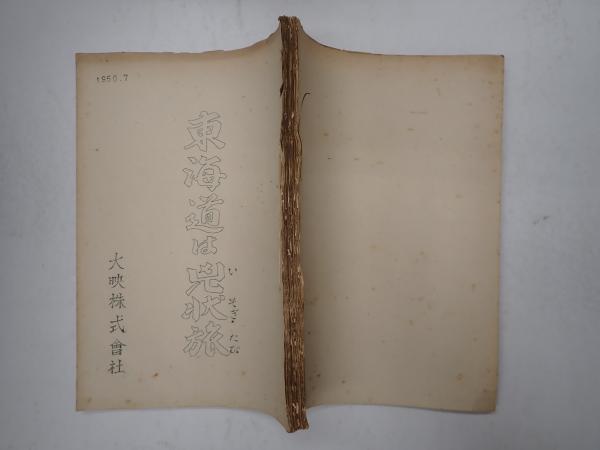 1950.7
東海道は兇状旅
いそぎたび
大映株式會社